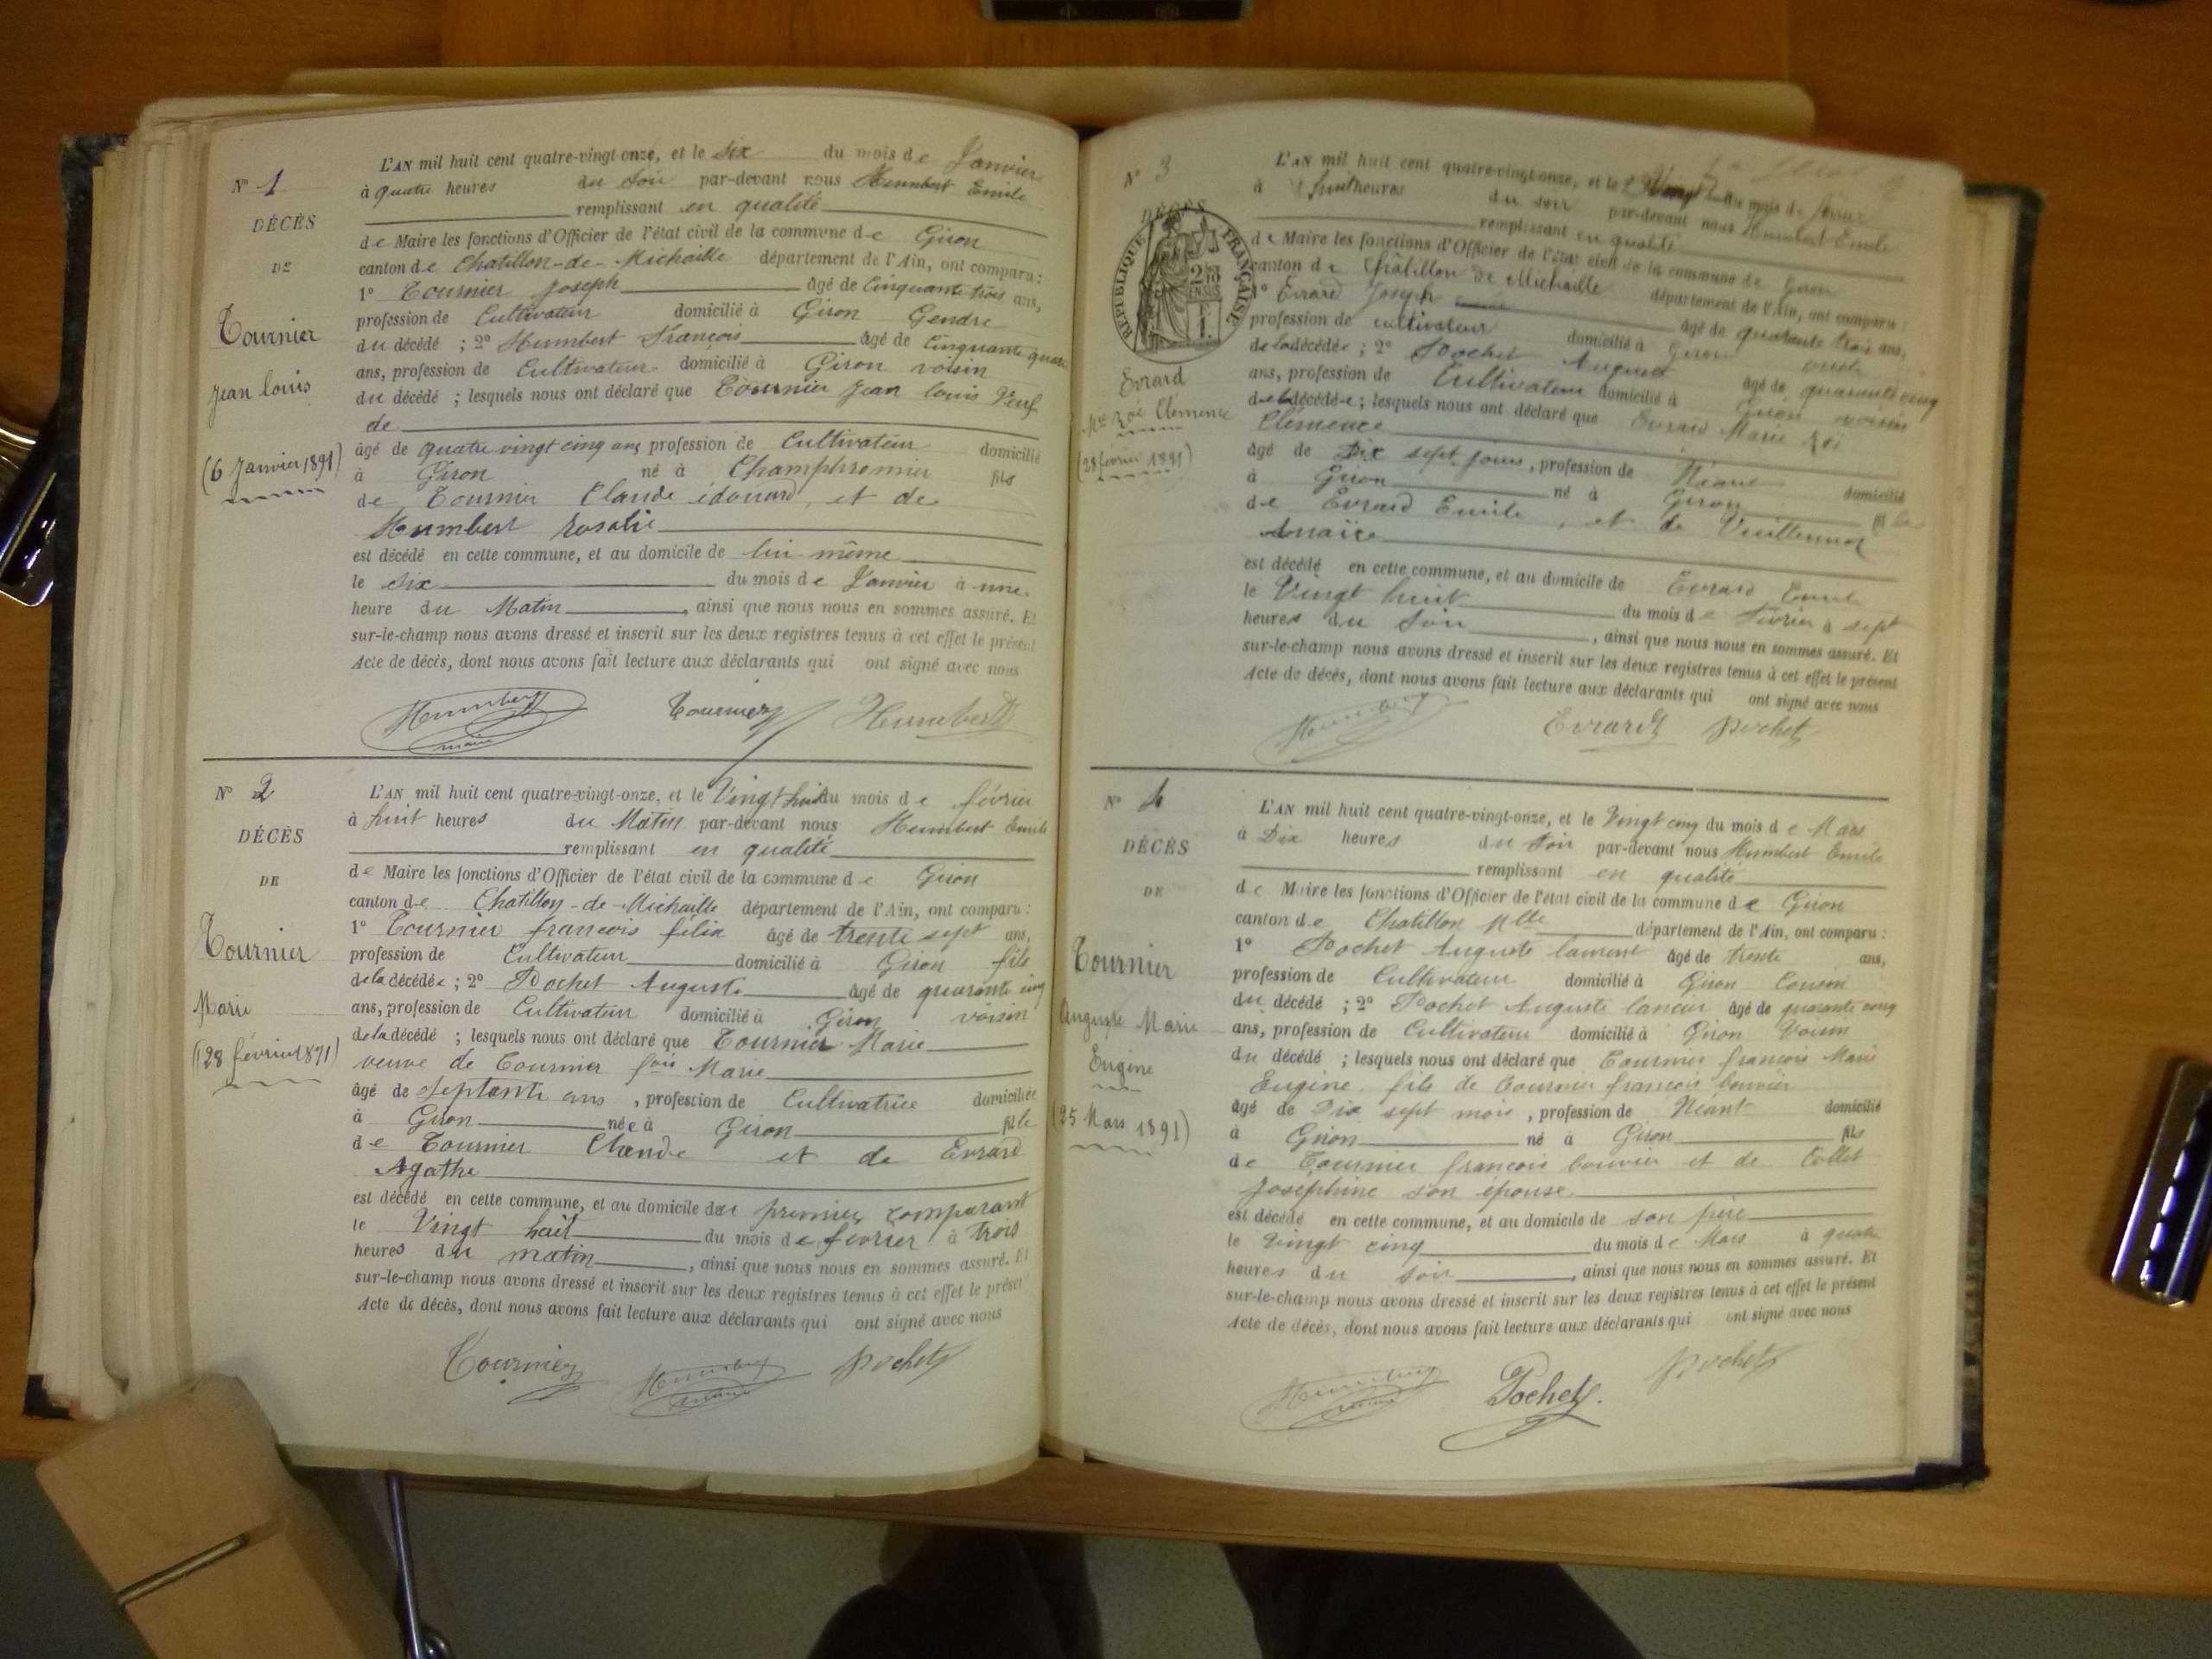 N° 1
DÉCÈS
DE
Tournier
Jean louis
(6 Janvier 1891)
L'AN mil huit cent quatre-vingt onze, et le six du mois de Janvier
à quatre heures du soir par-devant nous Humbert Emile
remplissant en qualité
de Maire les fonctions d'Officier de l'état civil de la commune de Giron
canton de Chatillon-de-Michaille département de l'Ain, ont comparu :
1° Tournier Joseph âgé de Cinquante trois ans,
profession de Cultivateur domicilié à Giron Gendre
du décédé ; 2° Humbert François âgé de Cinquante quatre
ans, profession de Cultivateur domicilié à Giron voisin
du décédé ; lesquels nous ont déclaré que Tournier Jean louis Veuf
de
âgé de quatre vingt cinq ans profession de Cultivateur domicilié
à Giron né à Champfromier fils
de Tournier Claude édouard, et de
Humbert rosalie
est décédé en cette commune, et au domicile de lui même
le six du mois de Janvier à une
heure du Matin, ainsi que nous nous en sommes assuré. Et
sur-le-champ nous avons dressé et inscrit sur les deux registres tenus à cet effet le présent
Acte de décès, dont nous avons fait lecture aux déclarants qui ont signé avec nous
Humbert Tournier Humbert
maire
N° 2
DÉCÈS
DE
Tournier
Marie
(28 février 1891)
L'AN mil huit cent quatre-vingt-onze, et le Vingt huit du mois de février
à huit heures du Matin par-devant nous Humbert Emile
remplissant en qualité
de Maire les fonctions d'Officier de l'état civil de la commune de Giron
canton de Chatillon-de-Michaille département de l'Ain, ont comparu :
1° Tournier francois félix âgé de trente sept ans,
profession de Cultivateur domicilié à Giron fils
de la décédée ; 2° Pochet Auguste âgé de quarante cinq
ans, profession de Cultivateur domicilié à Giron voisin
de la décédé ; lesquels nous ont déclaré que Tournier Marie
veuve de Tournier fois Marie
âgé de septante ans, profession de Cultivatrice domiciliée
à Giron née à Giron fille
de Tournier Claude et de Evrard
Agathe
est décédé en cette commune, et au domicile du premier comparant
le Vingt huit du mois de février à trois
heures du matin, ainsi que nous nous en sommes assuré. Et
sur-le-champ nous avons dressé et inscrit sur les deux registres tenus à cet effet le présent
Acte de décès, dont nous avons fait lecture aux déclarants qui ont signé avec nous
Tournier Humbert Pochet
maire
N° 3
DÉCÈS
RÉPUBLIQUE FRANÇAISE
Evrard
Mie Zoé Clémence
(28 février 1891)
L'AN mil huit cent quatre-vingt-onze, et le Vingt du mois de février
à huit heures du soir par-devant nous Humbert Emile
remplissant en qualité
de Maire les fonctions d'Officier de l'état civil de la commune de Giron
canton de Châtillon de Michaille département de l'Ain, ont comparu :
1° Evrard Joseph âgé de quarante trois ans,
profession de cultivateur domicilié à Giron oncle
de la décédée ; 2° Pochet Auguste âgé de quarante cinq
ans, profession de Cultivateur domicilié à Giron voisin
de la décédée ; lesquels nous ont déclaré que Evrard Marie Zoé
Clémence
âgé de Dix sept jours, profession de Néant domicilié
à Giron né à Giron fille
de Evrard Emile, et de Vuillermoz
Anaïse
est décédé en cette commune, et au domicile de Evrard Emile
le Vingt huit du mois de Février à sept
heures du Soir, ainsi que nous nous en sommes assuré. Et
sur-le-champ nous avons dressé et inscrit sur les deux registres tenus à cet effet le présent
Acte de décès, dont nous avons fait lecture aux déclarants qui ont signé avec nous
Humbert Evrard Pochet
N° 4
DÉCÈS
DE
Tournier
Auguste Marie
Eugine
(25 Mars 1891)
L'AN mil huit cent quatre-vingt-onze, et le Vingt cinq du mois de Mars
à Dix heures du Soir par-devant nous Humbert Emile
remplissant en qualité
de Maire les fonctions d'Officier de l'état civil de la commune de Giron
canton de Chatillon Mlle département de l'Ain, ont comparu :
1° Pochet Auguste laurent âgé de trente ans,
profession de Cultivateur domicilié à Giron Cousin
du décédé ; 2° Pochet Auguste lancien âgé de quarante cinq
ans, profession de Cultivateur domicilié à Giron Voisin
du décédé ; lesquels nous ont déclaré que Tournier francois Marie
Eugine fils de Tournier francois bouvier
âgé de Dix sept mois, profession de Néant domicilié
à Giron né à Giron fils
de Tournier francois bouvier et de Collet
Joséphine son épouse
est décédé en cette commune, et au domicile de son père
le Vingt cinq du mois de Mars à quatre
heures du soir, ainsi que nous nous en sommes assuré. Et
sur-le-champ nous avons dressé et inscrit sur les deux registres tenus à cet effet le présent
Acte de décès, dont nous avons fait lecture aux déclarants qui ont signé avec nous
Humbert Pochet Pochet
maire